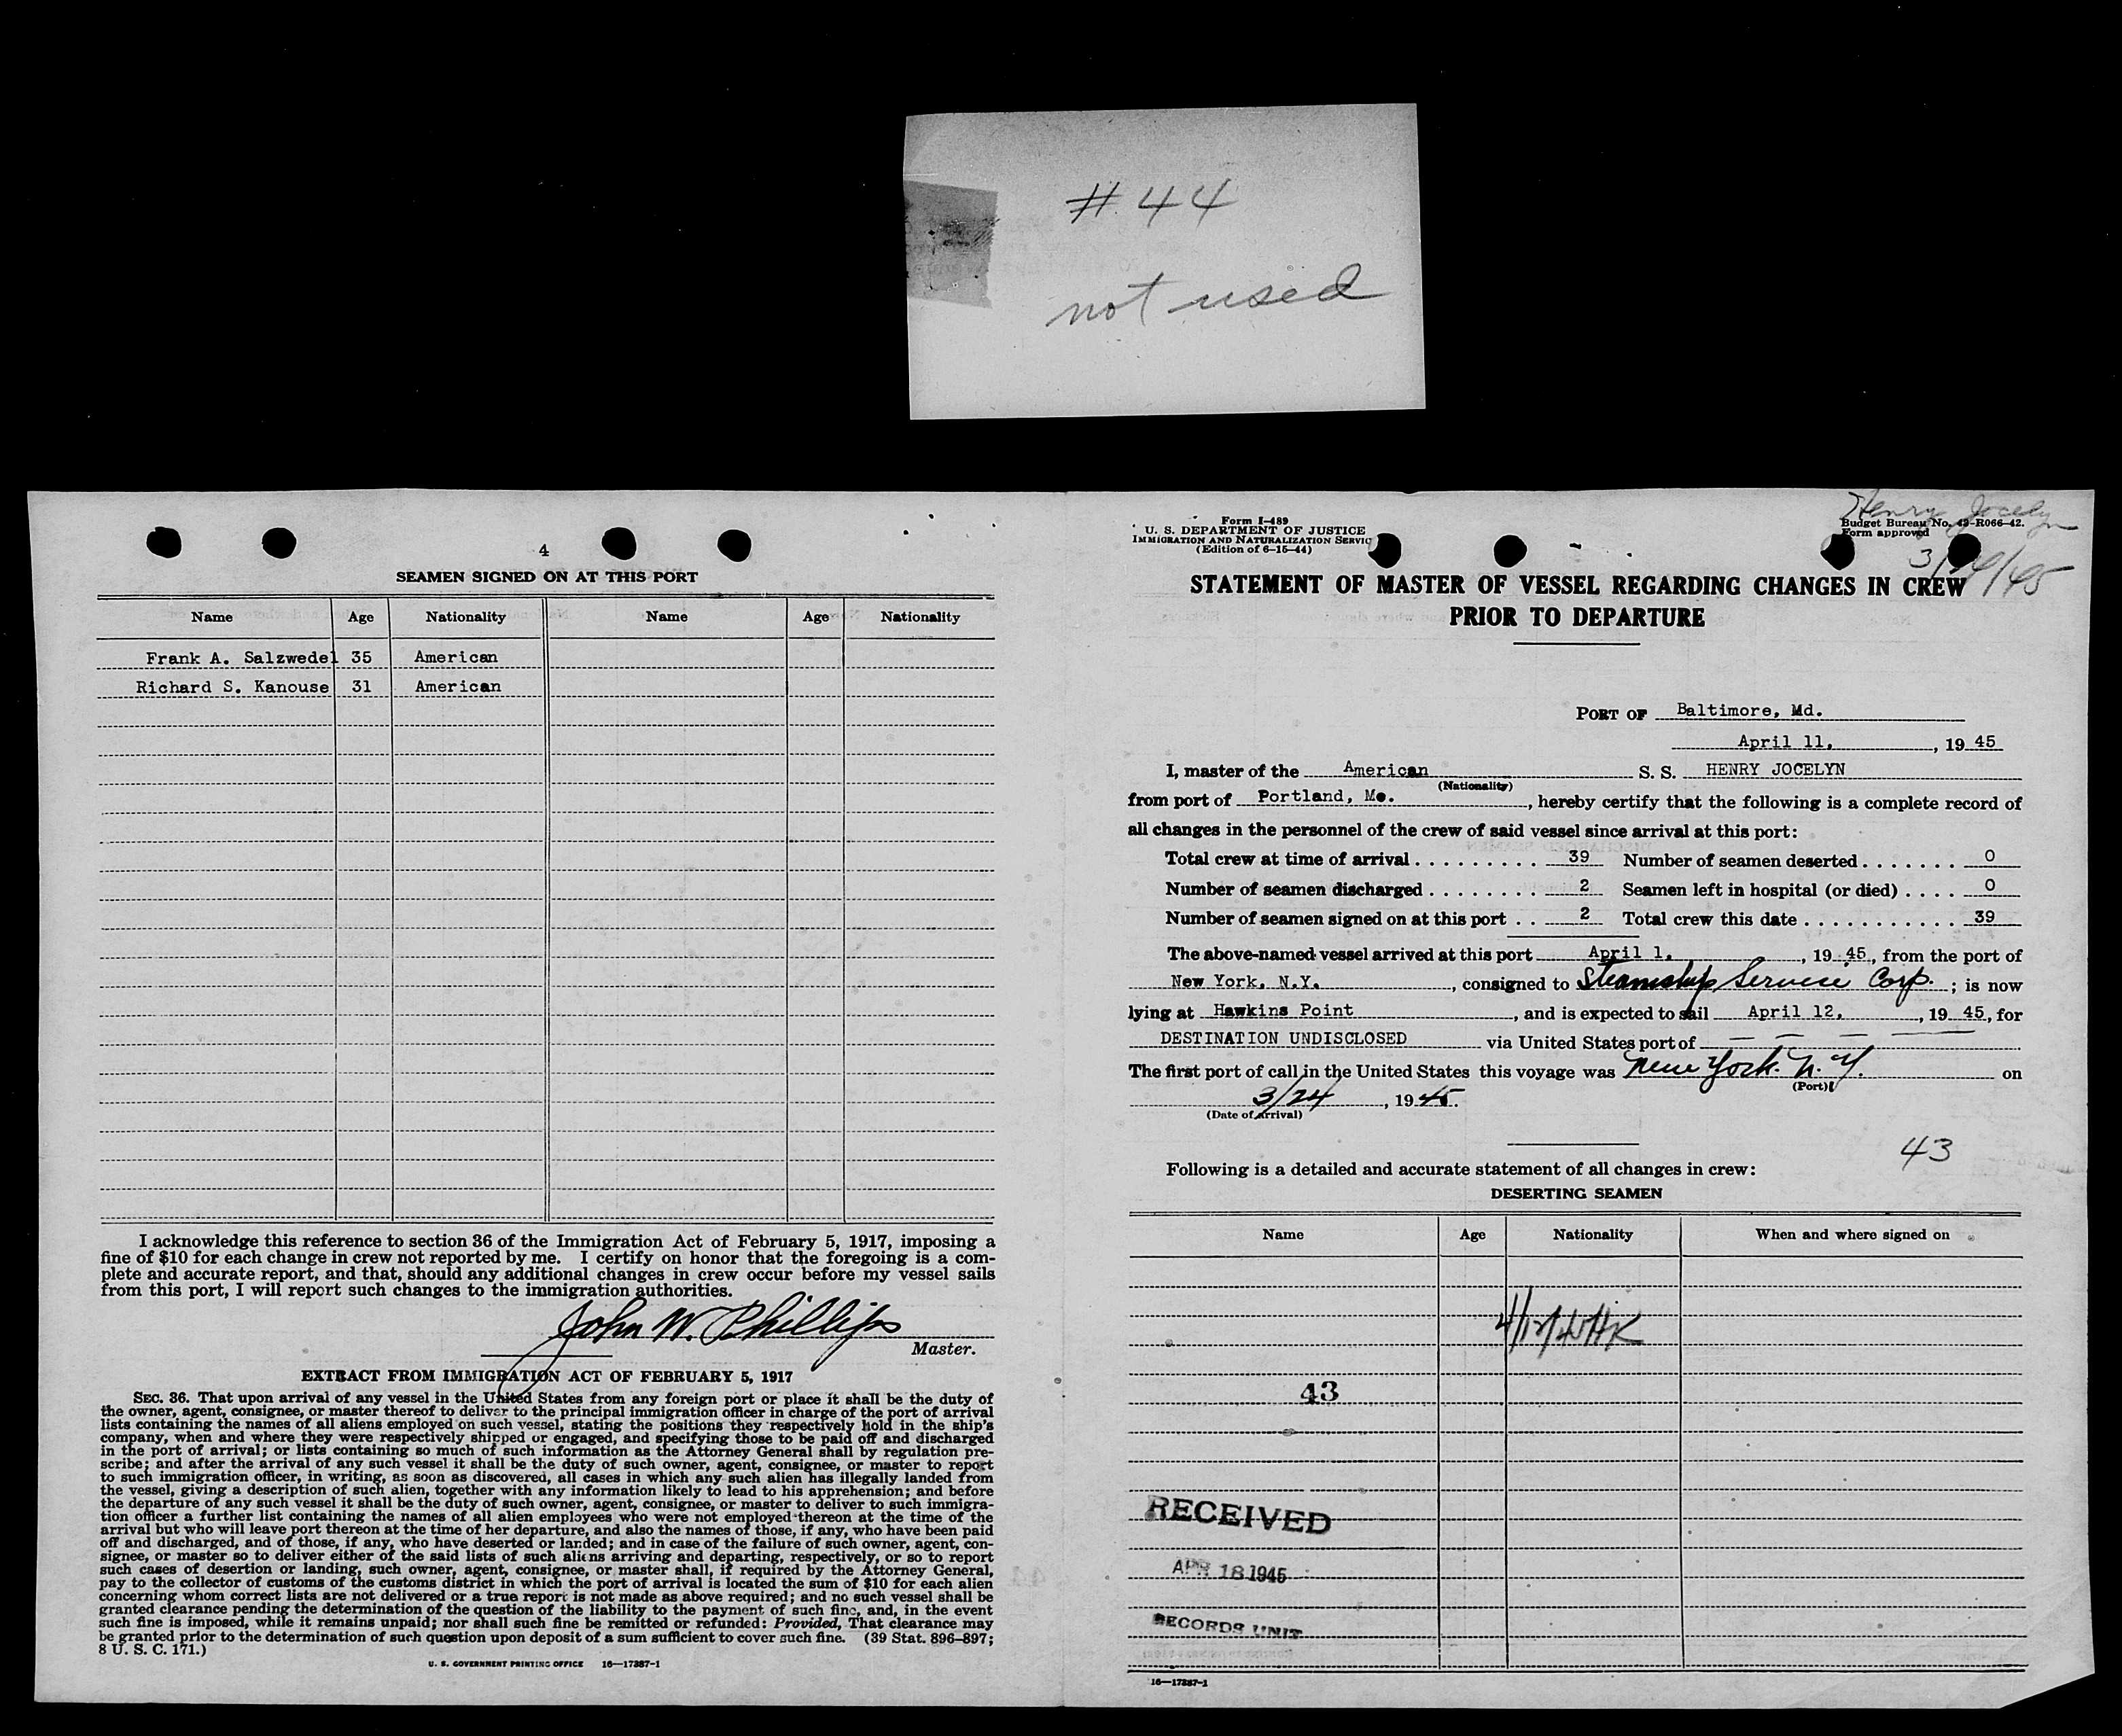 #44
not used
4
SEAMEN SIGNED ON AT THIS PORT
Name Age Nationality Name Age Nationality
Frank A. Salzwedel 35 American
Richard S. Kanouse 31 American
I acknowledge this reference to section 36 of the Immigration Act of February 5, 1917, imposing a
fine of $10 for each change in crew not reported by me. I certify on honor that the foregoing is a com-
plete and accurate report, and that, should any additional changes in crew occur before my vessel sails
from this port, I will report such changes to the immigration authorities.
John W. Phillips
Master.
EXTRACT FROM IMMIGRATION ACT OF FEBRUARY 5, 1917
SEC. 36. That upon arrival of any vessel in the United States from any foreign port or place it shall be the duty of
the owner, agent, consignee, or master thereof to deliver to the principal immigration officer in charge of the port of arrival
lists containing the names of all aliens employed on such vessel, stating the positions they respectively hold in the ship's
company, when and where they were respectively shipped or engaged, and specifying those to be paid off and discharged
in the port of arrival; or lists containing so much of such information as the Attorney General shall by regulation pre-
scribe; and after the arrival of any such vessel it shall be the duty of such owner, agent, consignee, or master to report
to such immigration officer, in writing, as soon as discovered, all cases in which any such alien has illegally landed from
the vessel, giving a description of such alien, together with any information likely to lead to his apprehension; and before
the departure of any such vessel it shall be the duty of such owner, agent, consignee, or master to deliver to such immigra-
tion officer a further list containing the names of all alien employees who were not employed thereon at the time of the
arrival but who will leave port thereon at the time of her departure, and also the names of those, if any, who have been paid
off and discharged, and of those, if any, who have deserted or landed; and in case of the failure of such owner, agent, con-
signee, or master so to deliver either of the said lists of such aliens arriving and departing, respectively, or so to report
such cases of desertion or landing, such owner, agent, consignee, or master shall, if required by the Attorney General,
pay to the collector of customs of the customs district in which the port of arrival is located the sum of $10 for each alien
concerning whom correct lists are not delivered or a true report is not made as above required; and no such vessel shall be
granted clearance pending the determination of the question of the liability to the payment of such fine, and, in the event
such fine is imposed, while it remains unpaid; nor shall such fine be remitted or refunded: Provided, That clearance may
be granted prior to the determination of such question upon deposit of a sum sufficient to cover such fine. (39 Stat. 896–897;
8 U. S. C. 171.)
U. S. GOVERNMENT PRINTING OFFICE 16—17387-1
Henry Jocelyn
Form I-489
U. S. DEPARTMENT OF JUSTICE
IMMIGRATION AND NATURALIZATION SERVIC
(Edition of 6-15-44)
Budget Bureau No. 43-R066-42.
Form approved
3/24/45
STATEMENT OF MASTER OF VESSEL REGARDING CHANGES IN CREW
PRIOR TO DEPARTURE
PORT OF Baltimore, Md.
April 11, , 19 45
I, master of the American S. S. HENRY JOCELYN
(Nationality)
from port of Portland, Me. , hereby certify that the following is a complete record of
all changes in the personnel of the crew of said vessel since arrival at this port:
Total crew at time of arrival . . . . . . . . . 39 Number of seamen deserted . . . . . . . 0
Number of seamen discharged . . . . . . . . 2 Seamen left in hospital (or died) . . . . 0
Number of seamen signed on at this port . . 2 Total crew this date . . . . . . . . . . . 39
The above-named vessel arrived at this port April 1, , 19 45, from the port of
New York, N.Y. , consigned to Steamship Service Corp. ; is now
lying at Hawkins Point , and is expected to sail April 12, , 19 45, for
DESTINATION UNDISCLOSED via United States port of — — — —
The first port of call in the United States this voyage was New York. N. Y. on
(Port)
3/24 , 19 45.
(Date of arrival)
43
Following is a detailed and accurate statement of all changes in crew:
DESERTING SEAMEN
Name Age Nationality When and where signed on
4/12/45 HK
43
RECEIVED
APR 18 1945
RECORDS UNIT
16—17387-1